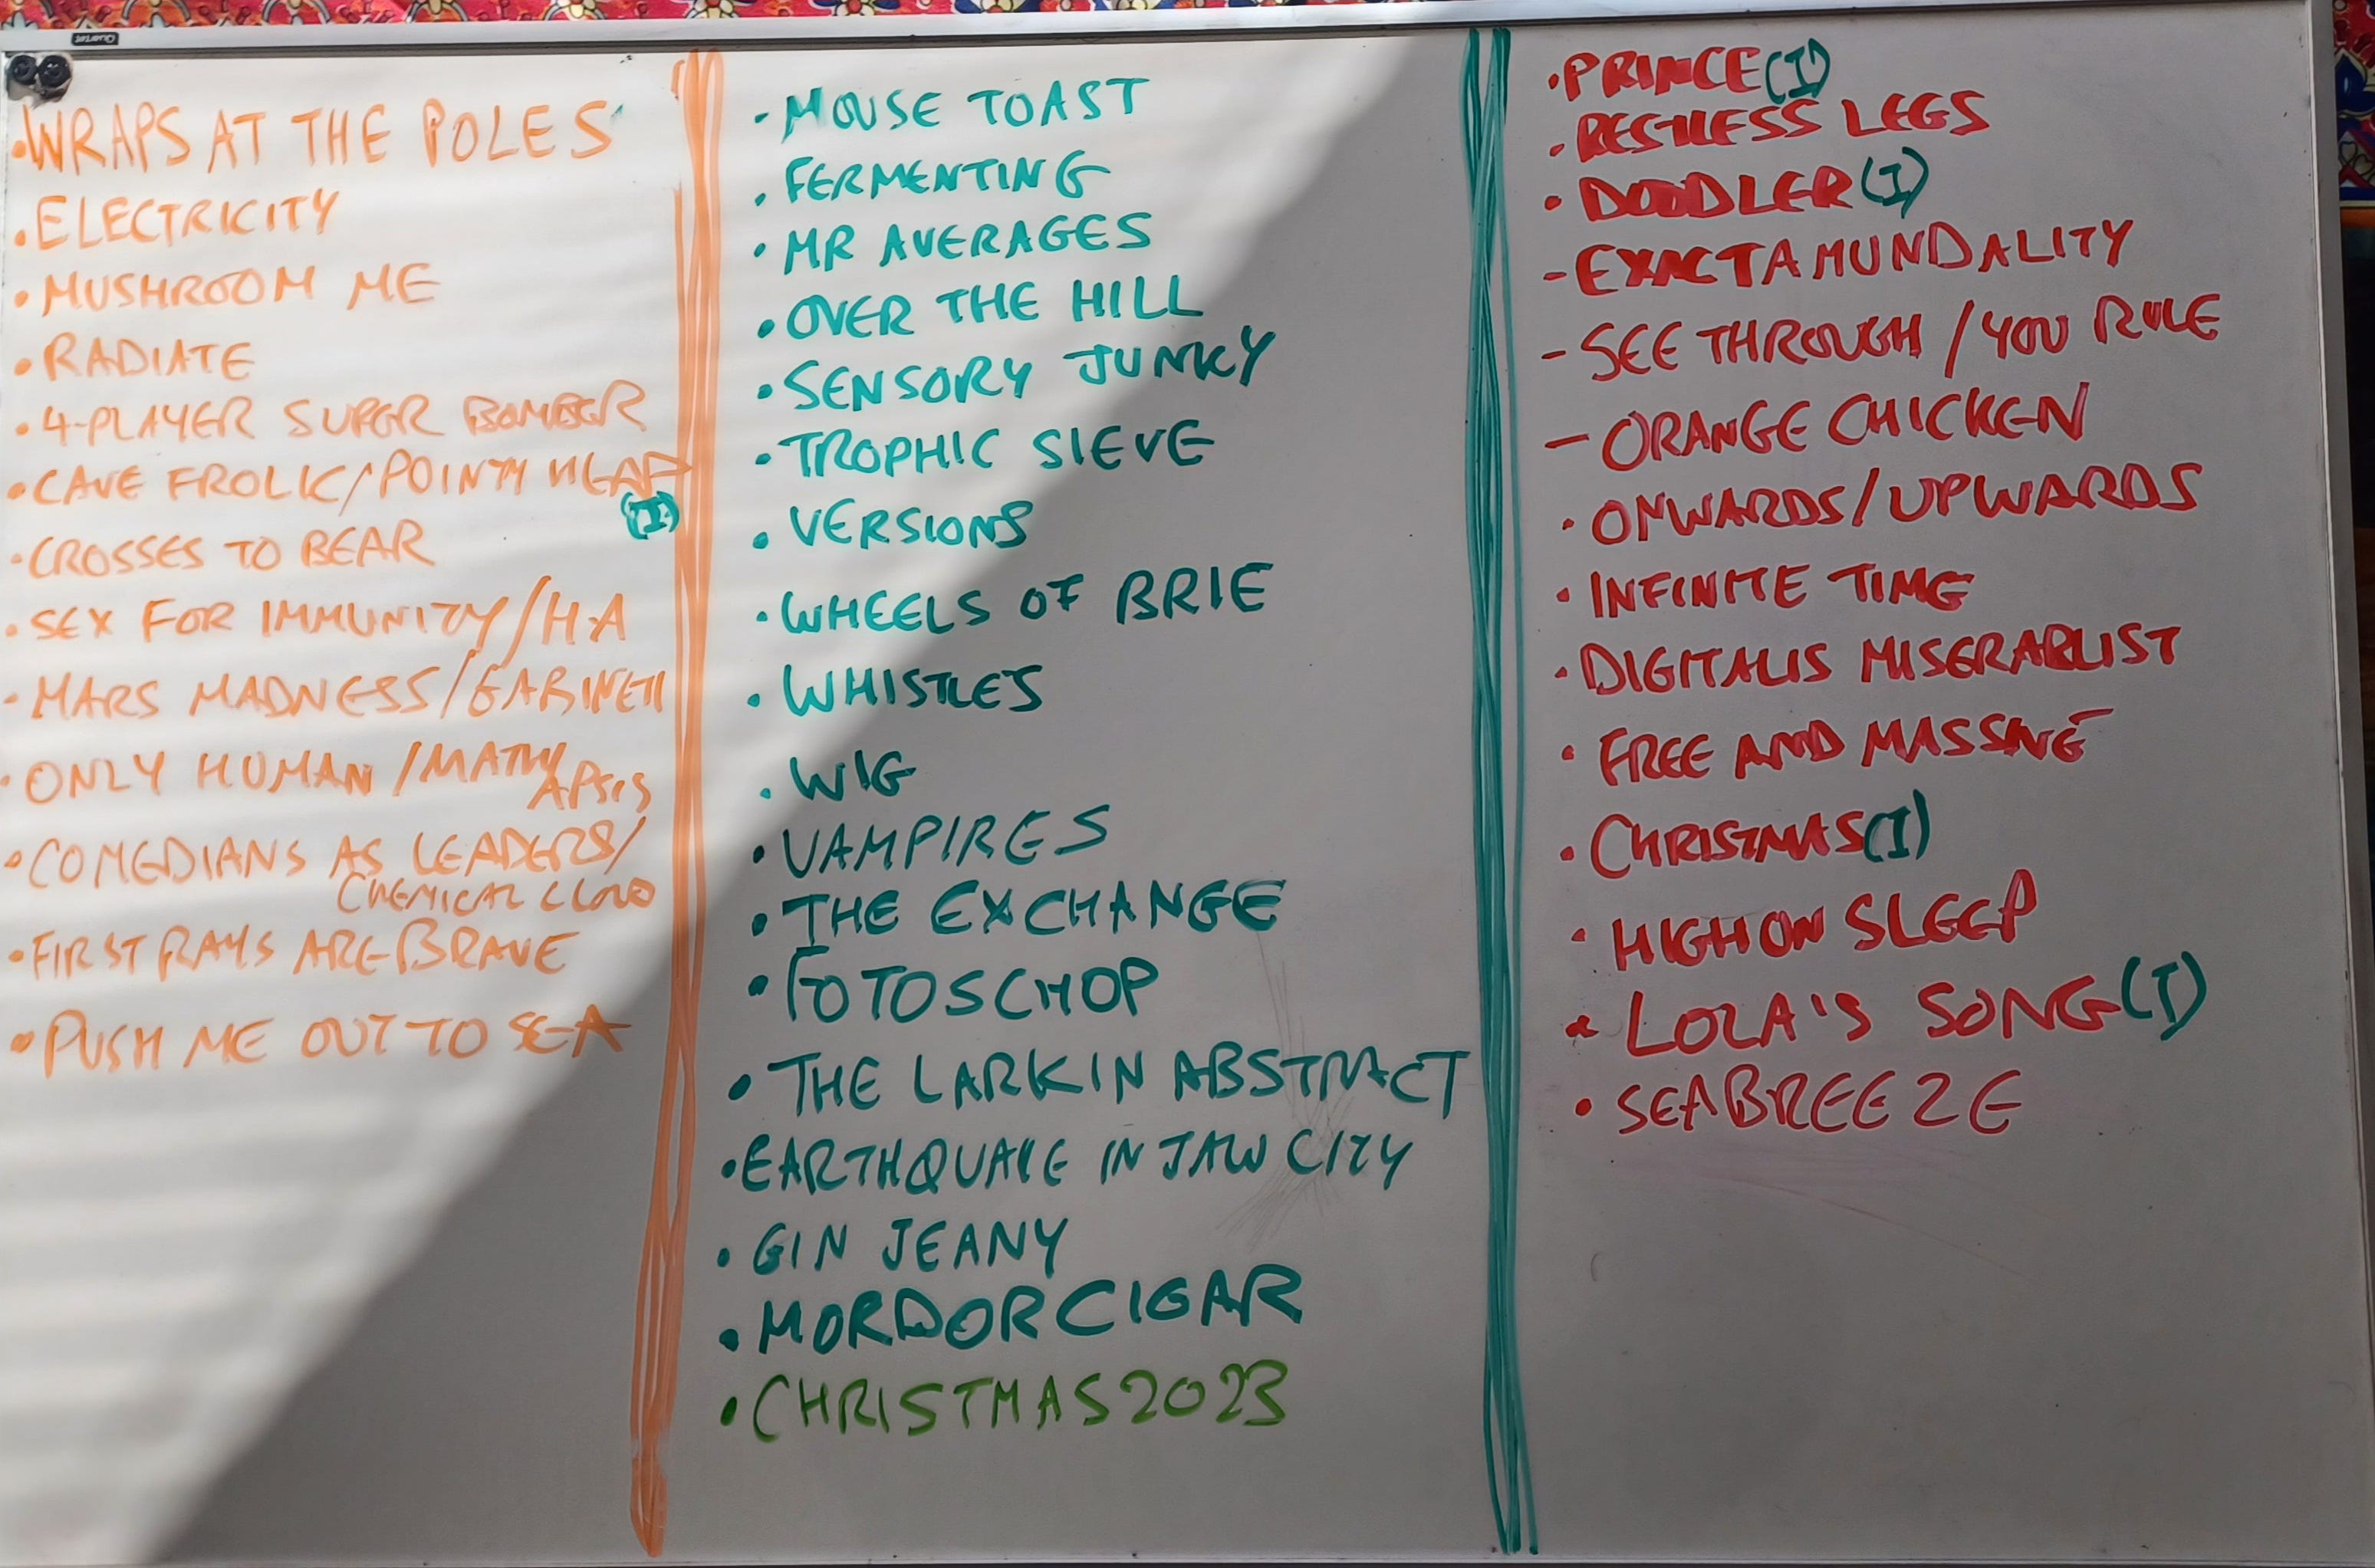 • WRAPS AT THE POLES
• ELECTRICITY
• MUSHROOM ME
• RADIATE
• 4-PLAYER SUPER BOMBER
• CAVE FROLIC/POINTY HEAD
(I)
• CROSSES TO BEAR
• SEX FOR IMMUNITY/H.A
• MARS MADNESS/
• ONLY HUMAN /MATHY
APSIS
• COMEDIANS AS LEADERS/
CHEMICAL CLOUD
• FIRST RAYS ARE BRAVE
• PUSH ME OUT TO SEA
- MOUSE TOAST
• FERMENTING
• MR AVERAGES
• OVER THE HILL
• SENSORY JUNKY
• TROPHIC SIEVE
• VERSIONS
• WHEELS OF BRIE
• WHISTLES
• WIG
• VAMPIRES
• THE EXCHANGE
• FOTOSCHOP
• THE LARKIN ABSTRACT
• EARTHQUAKE IN JAW CITY
• GIN JEANY
• MORDOR CIGAR
• CHRISTMAS 2023
• PRINCE (I)
• RESTLESS LEGS
• DOODLER (I)
- EXACTAMUNDALITY
- SEE THROUGH / YOU RULE
- ORANGE CHICKEN
• ONWARDS/UPWARDS
• INFINITE TIME
• DIGITALIS MISERABLIST
• FREE AND MASSIVE
• CHRISTMAS (I)
• HIGH ON SLEEP
• LOLA'S SONG (I)
• SEABREEZE
Quartet